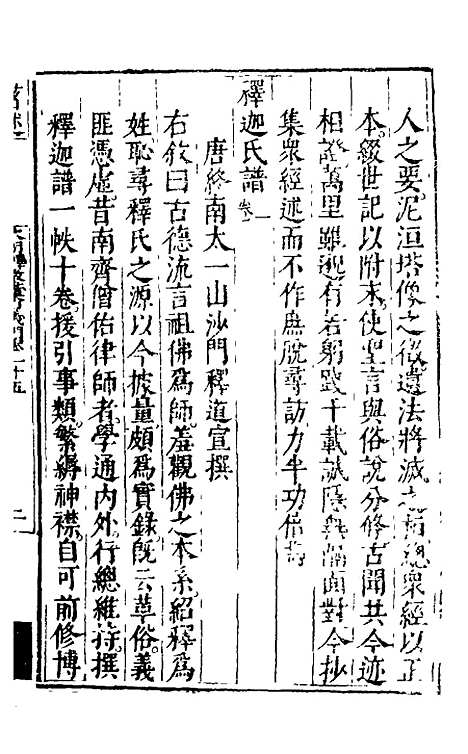 人之要泥洹塔像之徵遺法將滅之相總衆經以正
本綴世記以附末使聖言與俗說分條古聞共今迹
相證萬里雖邈有若躬踐千載誠隱無隔面對今抄
集衆經述而不作庶脫尋訪力半功倍
釋迦氏譜 卷一
唐終南太一山沙門釋道宣撰
右敘曰古德流言祖佛爲師羞觀佛之本系紹釋爲
姓恥尋釋氏之源以今據量頗爲實錄旣云革俗義
匪憑虛昔南齊僧佑律師者學通內外行總維持撰
釋迦譜一帙十卷援引事類繁縟神襟自可前修博
二